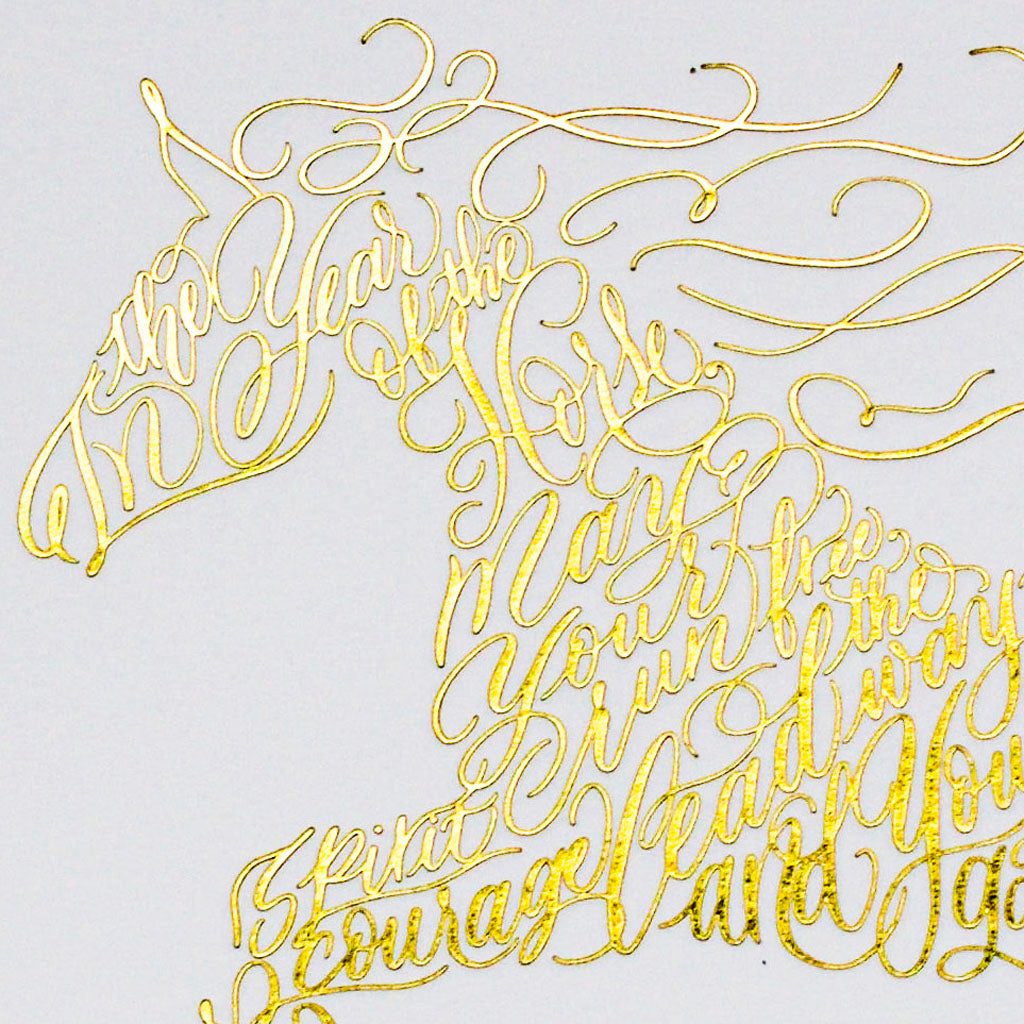 In the Year of the Horse
May Your free
Spirit run
Courage lead the way
and You